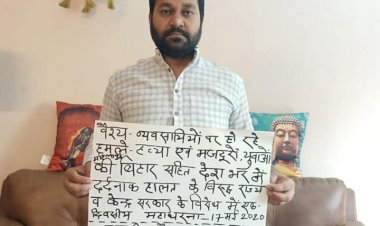 वैश्य- व्यवसायियों पर हो रहे
हमले, हत्या एवं मजदूरों, युवाओं
की बिहार सहित देश भर में
दर्दनाक हालत के विरुद्ध राज्य
व केन्द्र सरकार के विरोध में एक
दिवसीय महाधरना-17 मई 2020